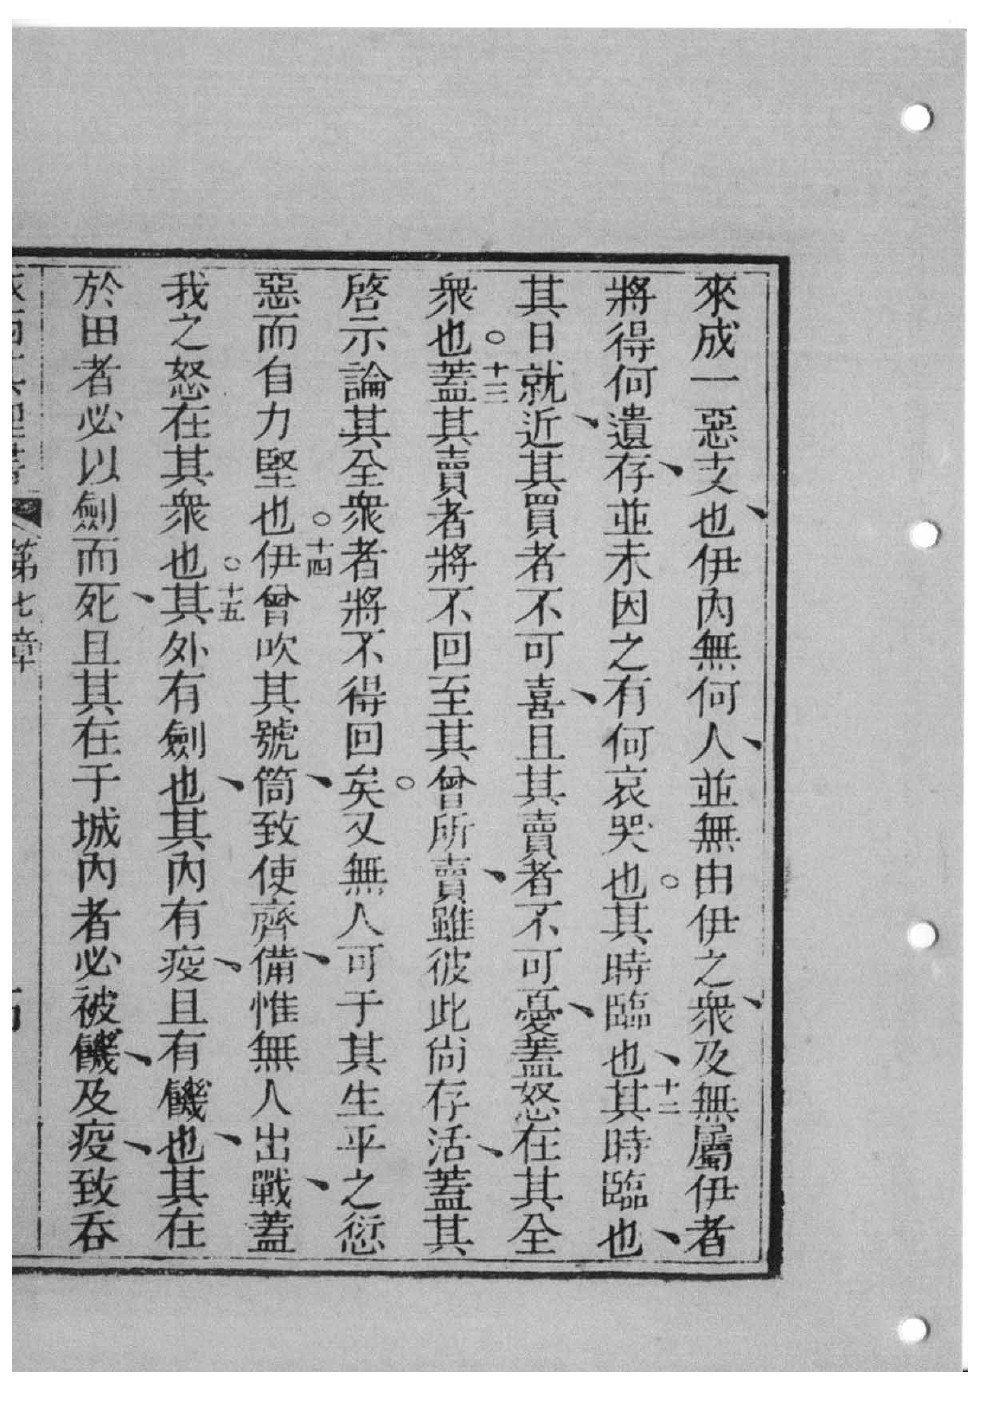 來成一惡支、也伊內無何人、並無由伊之衆、及無屬伊者
將得何遺存、並未因之有何哀哭也。其時臨也、十二其時臨也、
其日就近、其買者不可喜、且其賣者不可憂、蓋怒在其全
衆也。十三蓋其賣者將不回至其曾所賣、雖彼此尙存活、蓋其
啓示論其全衆者將不得回矣。又無人可于其生平之愆
惡而自力堅也。十四伊曾吹其號筒、致使齊備、惟無人出戰、蓋
我之怒在其衆也。十五其外有劍也、其內有疫、且有饑也、其在
於田者必以劍而死、且其在于城內者必被饑、及疫、致呑
第七章